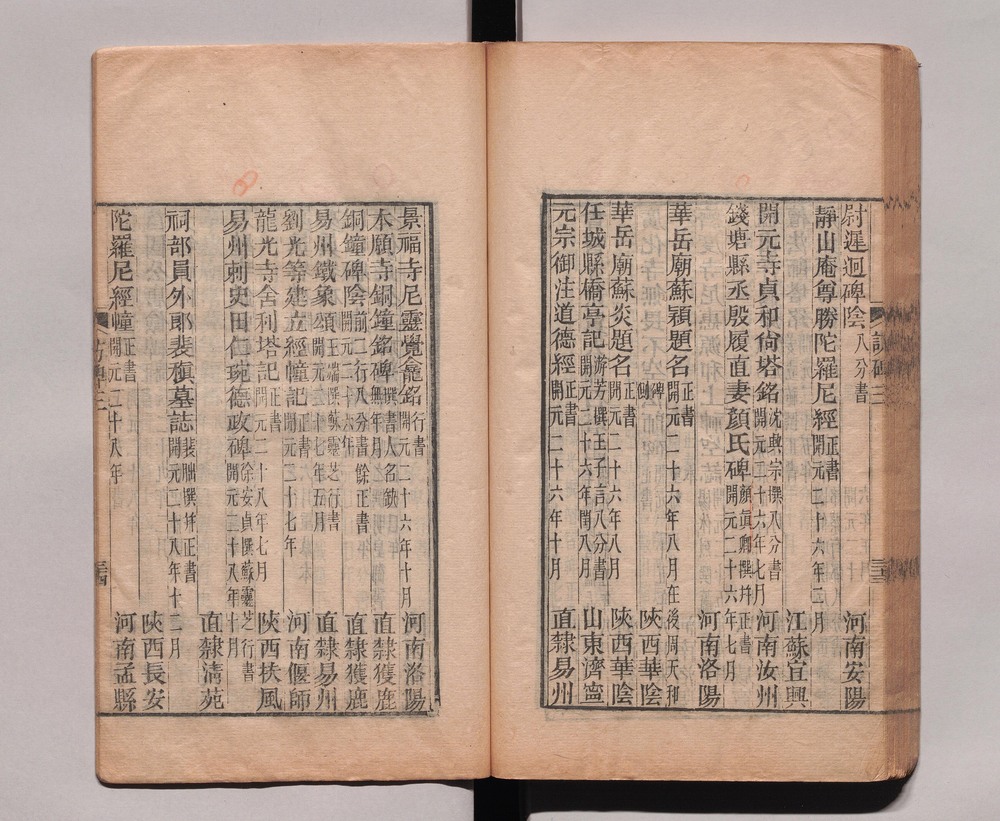 尉遲迥碑陰 八分書 河南安陽
靜山庵尊勝陀羅尼經 正書 開元二十六年三月 江蘇宜興
開元寺貞和尚塔銘 沈興宗撰八分書 開元二十六年七月 河南汝州
錢塘縣丞殷履直妻顏氏碑 顏眞卿撰幷正書 開元二十六年七月 河南洛陽
華岳廟蘇頴題名 正書 開元二十六年八月在後周天和碑側 陝西華陰
華岳廟蘇炎題名 正書 開元二十六年八月 陝西華陰
任城縣橋亭記 游芳撰王子言八分書 開元二十六年閏八月 山東濟寧
元宗御注道德經 正書 開元二十六年十月 直隸易州
景福寺尼靈覺龕銘 行書 開元二十六年十月 河南洛陽
本願寺銅鐘銘碑 撰書人名缺 無年月 直隸獲鹿
銅鐘碑陰 前二行八分書餘正書 開元二十六年 直隸獲鹿
易州鐵象頌 王端撰蘇靈芝行書 開元二十七年五月 直隸易州
劉光等建立經幢記 正書 開元二十七年 河南偃師
龍光寺舍利塔記 正書 開元二十八年七月 陝西扶風
易州刺史田仁琬德政碑 徐安貞撰蘇靈芝行書 開元二十八年十月 直隸清苑
祠部員外郎裴稹墓誌 裴朏撰幷正書 開元二十八年十二月 陝西長安
陀羅尼經幢 正書 開元二十八年 河南孟縣